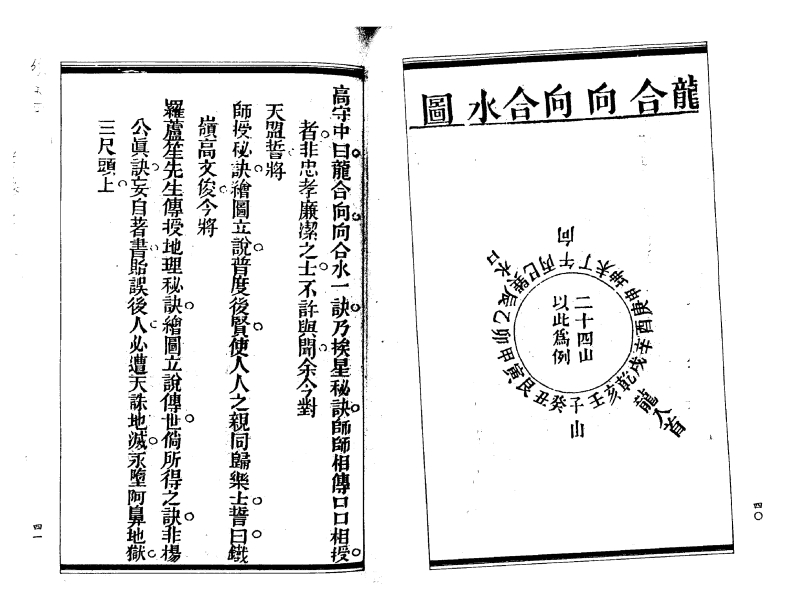 龍合向向合水圖
向
水口
巽巳丙午丁未坤申庚酉辛戌乾亥壬子癸丑艮寅甲卯乙辰
龍入首
山
二十四山
以此為例
四〇
高守中曰龍合向向合水一訣乃挨星秘訣師師相傳口口相授
者非忠孝廉潔之士不許與聞余今對
天盟誓將
師授秘訣繪圖立說普度後賢使人人之親同歸樂土誓曰鐵
嶺高文俊今將
羅蘆笙先生傳授地理秘訣繪圖立說傳世倘所得之訣非楊
公眞訣妄自著書貽誤後人必遭天誅地滅永墮阿鼻地獄
三尺頭上
四一